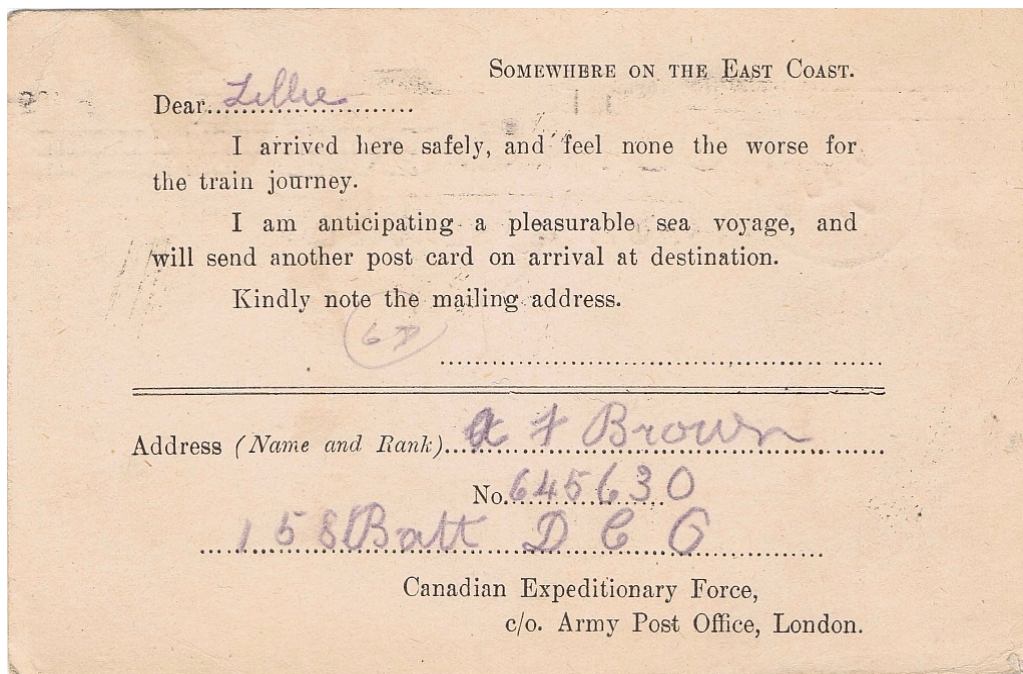 SOMEWHERE ON THE EAST COAST.
Dear Lillie
I arrived here safely, and feel none the worse for
the train journey.
I am anticipating a pleasurable sea voyage, and
will send another post card on arrival at destination.
Kindly note the mailing address.
Address (Name and Rank) A F Brown
No. 645630
158 Batt D C O
Canadian Expeditionary Force,
c/o. Army Post Office, London.